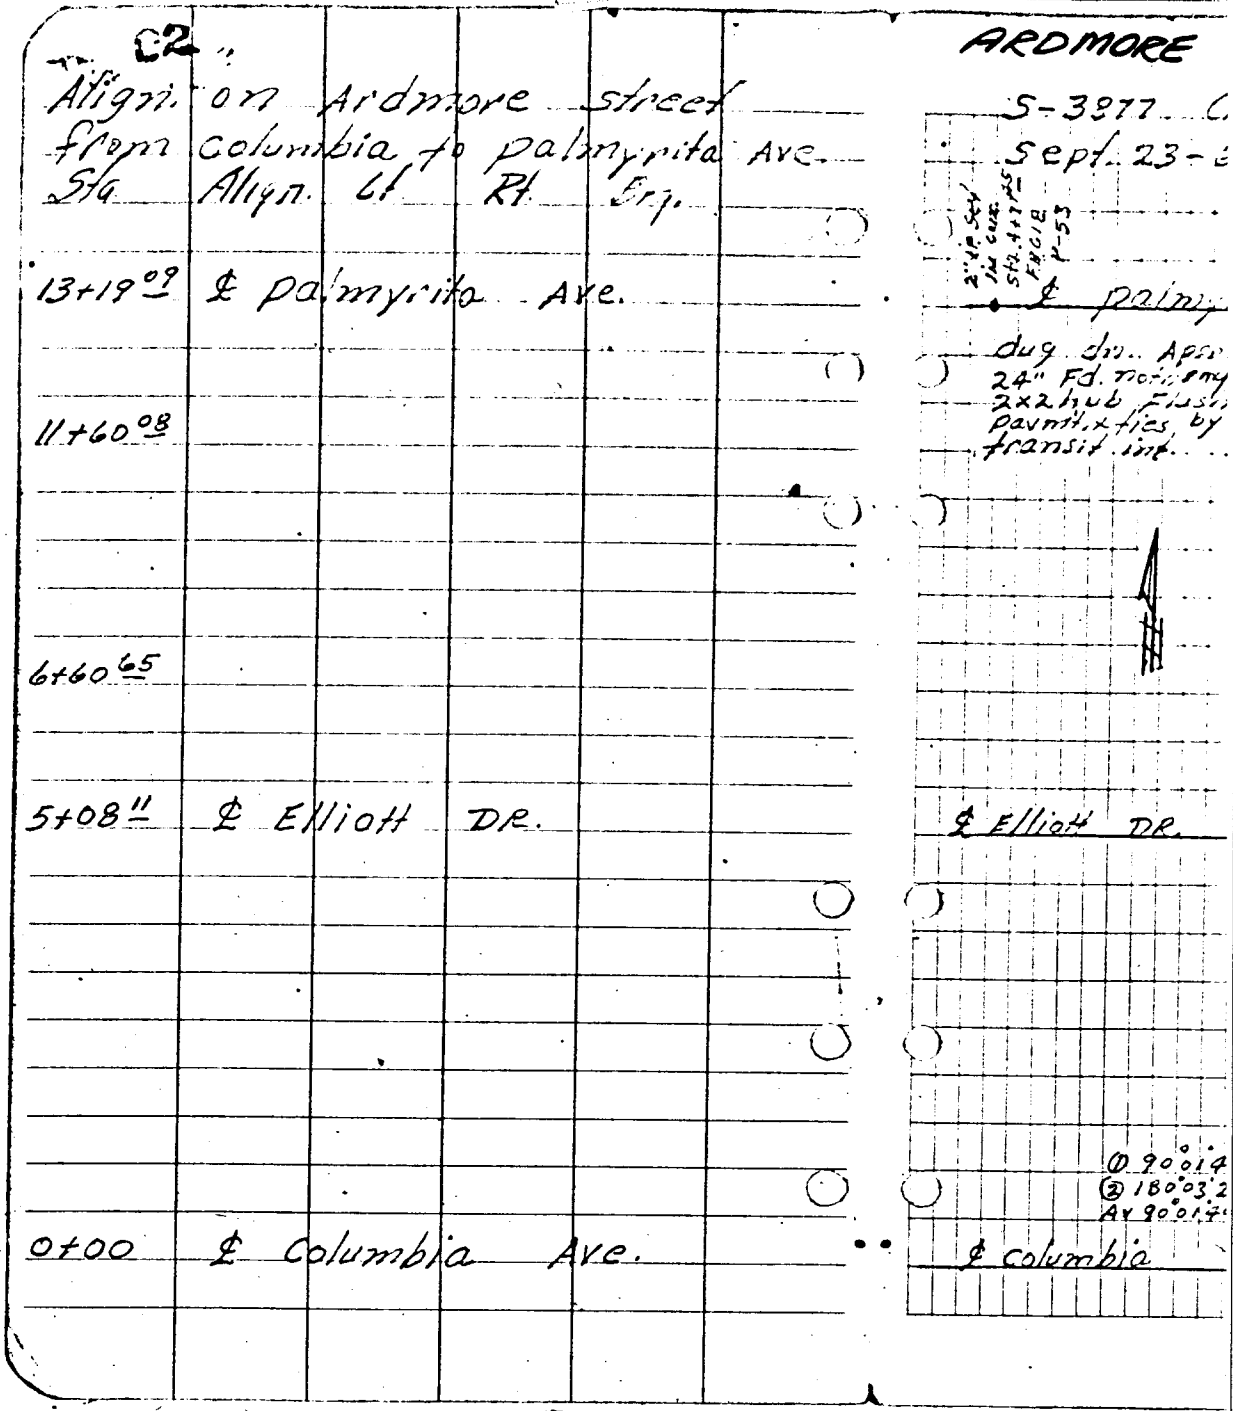 C2
Align. on Ardmore street
from Columbia to palmyrita Ave.
Sta Align. Lt Rt
13+19 09 ℄ palmyrita Ave.
11+60 08
6+60 65
5+08 11 ℄ Elliott DR.
0+00 ℄ Columbia Ave.
ARDMORE
S-3877
Sept. 23-
2" I.P. Set
P-53
℄ palmy
dug dn.
24" Fd.
2x2 hub
ties by
transit int.
℄ Elliott DR.
① 90°01'4
② 180°03'2
Av 90°01'4
℄ Columbia